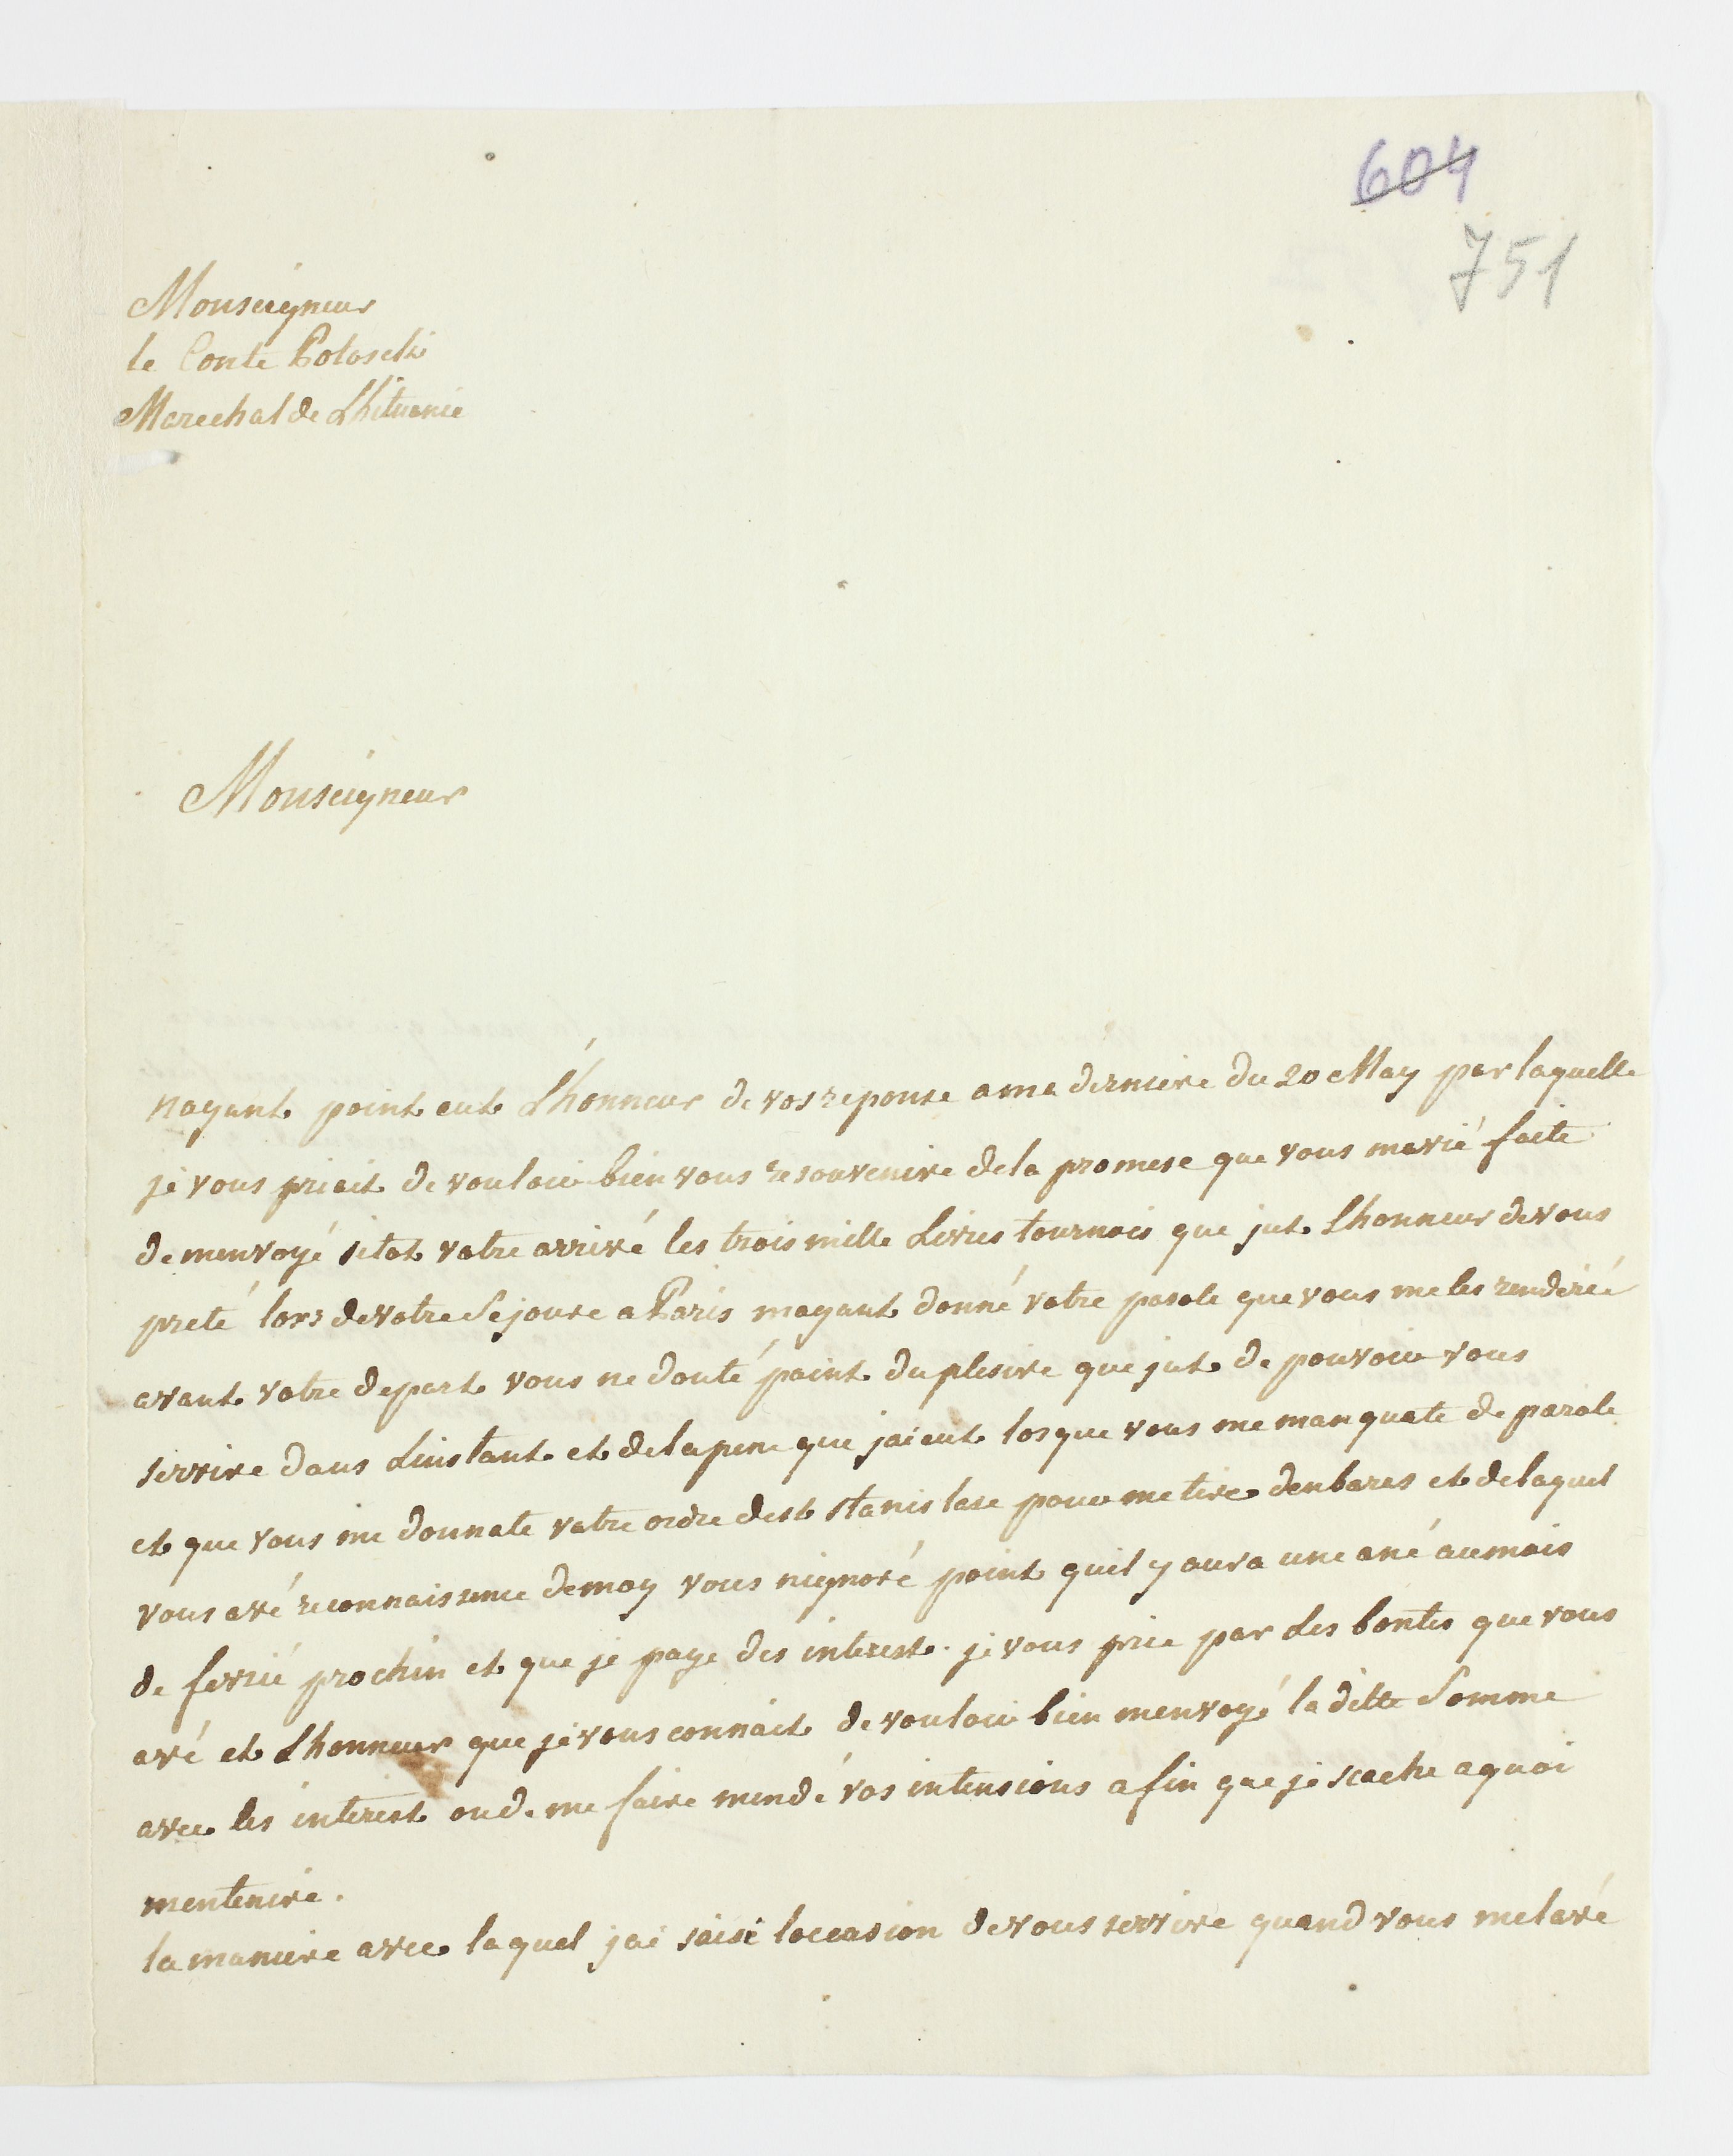 604
751
Monseigneur
le Conte Potoscki
Marechal de Lhituanie
Monseigneur
nayant point eut L'honneur de vos reponse a ma derniere du 20 May par laquelle
je vous priait de vouloir bien vous resouvenire de la promese que vous mavié faite
de menvoyé sitot votre arrivé les trois mille Livres tournois que jut Lhonneur de vous
preté lors de votre Sejoure a Paris mayant donné votre parole que vous me les renderié
avant votre depart vous ne douté point du plesire que jut de pouvoir vous
servire dans Linstant et de la pene que jai eut losque vous me manquate de parole
et que vous me donnate votre ordre de st Stanislase pour me tire denbares et de laquel
vous avé reconnaissence de moy vous nignoré point quil y aura une ané au mois
de fevrié prochin et que je paye des interest. je vous prie par Les bontes que vous
avé et Lhonneur que je vous connait de vouloir bien menvoyé la ditte Somme
avec les interest ou de me faire mendé vos intensions afin que je scache a quoi
mentenire.
la maniere avec laquel jai saisi loccasion de vous servire quand vous me lavé